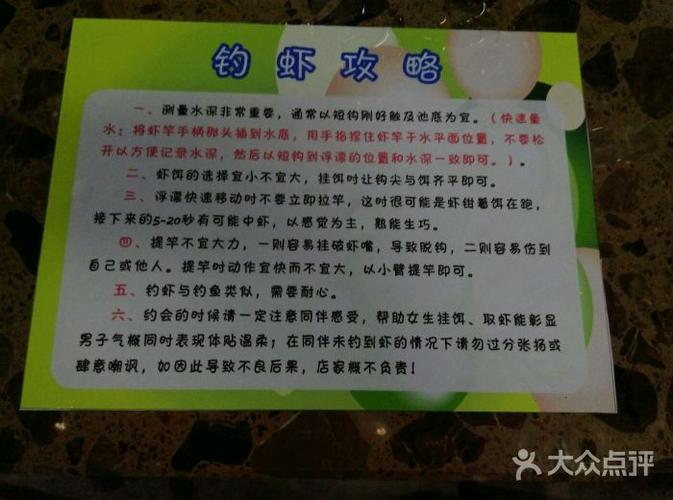 钓虾攻略
一、测量水深非常重要，通常以短钩刚好触及池底为宜。（快速量
水：将虾竿手柄那头插到水底，用手指捏住虾竿于水平面位置，不要松
开以方便记录水深，然后以短钩到浮漂的位置和水深一致即可。）。
二、虾饵的选择宜小不宜大，挂饵时让钩尖与饵齐平即可。
三、浮漂快速移动时不要立即拉竿，这时很可能是虾钳着饵在跑，
接下来的5-20秒有可能中虾，以感觉为主，熟能生巧。
四、提竿不宜大力，一则容易挂破虾嘴，导致脱钩，二则容易伤到
自己或他人。提竿时动作宜快而不宜大，以小臂提竿即可。
五、钓虾与钓鱼类似，需要耐心。
六、约会的时候请一定注意同伴感受，帮助女生挂饵、取虾能彰显
男子气概同时表现体贴温柔；在同伴未钓到虾的情况下请勿过分张扬或
肆意嘲讽，如因此导致不良后果，店家概不负责！
大众点评